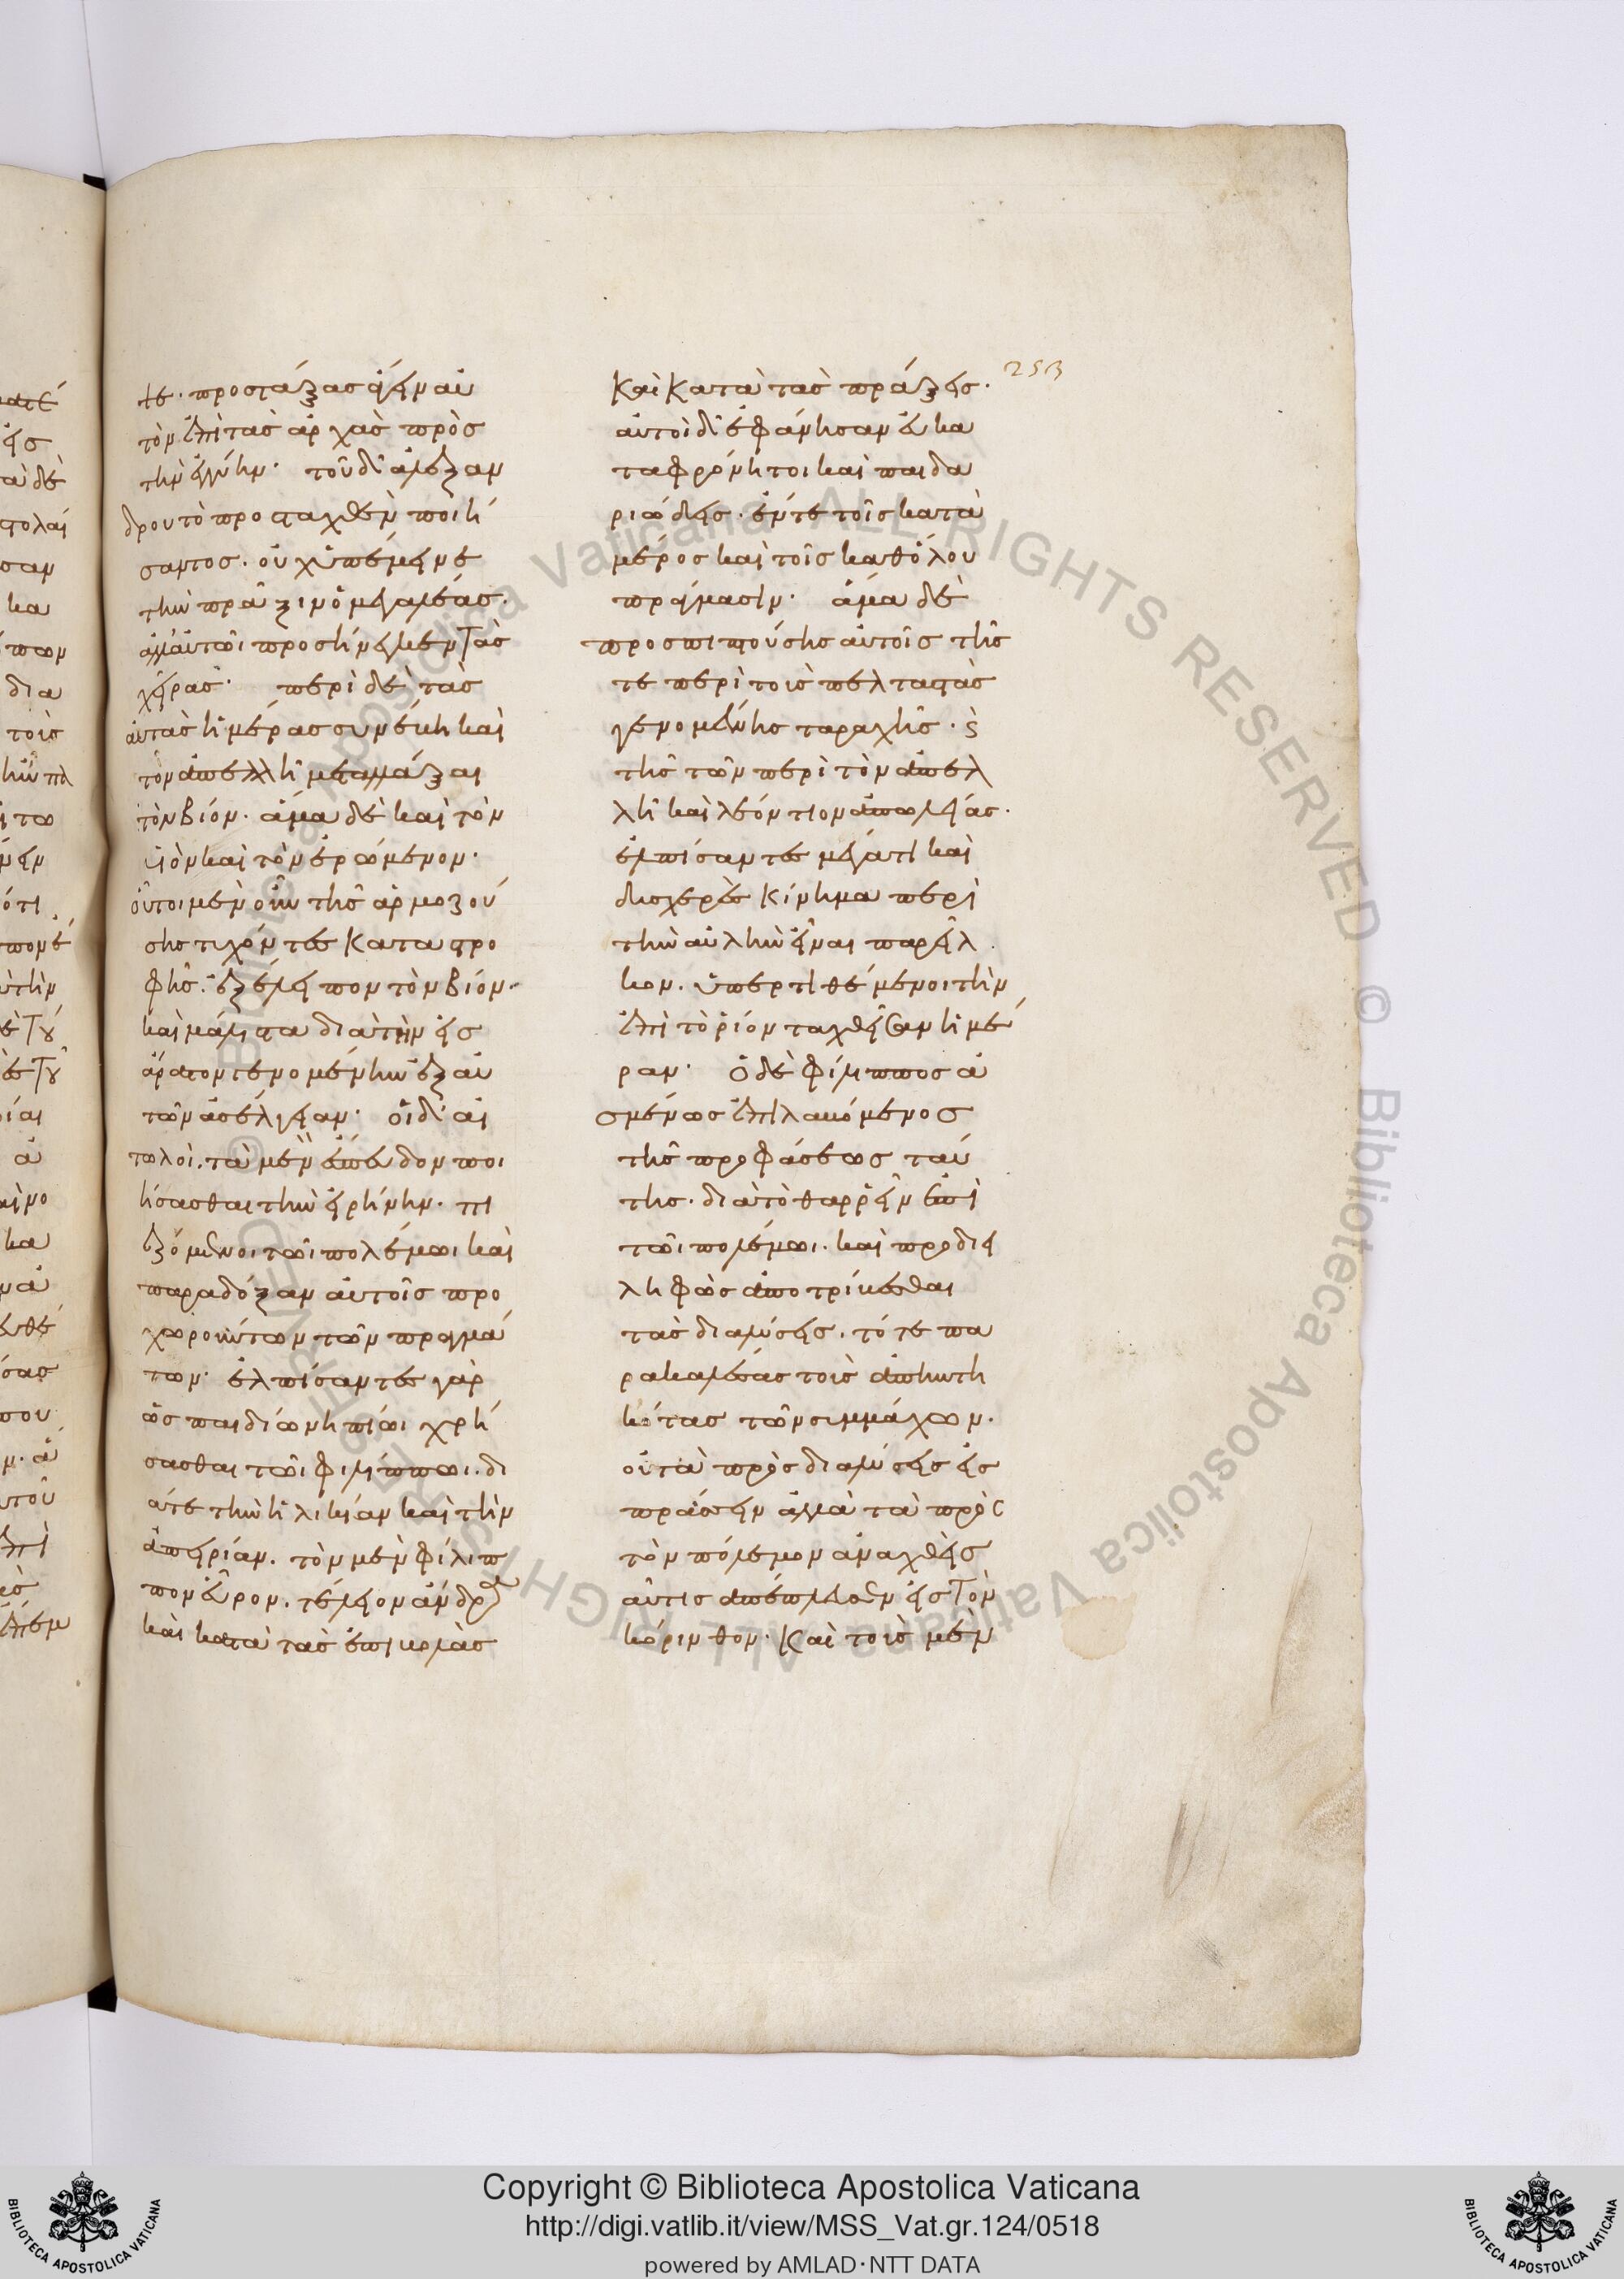 τε· προστάξας ἄγειν αὐ
τὸν ἐπὶ τὰς ἀρχὰς πρὸς
τὴν ἐγγύην· τοῦ δ' ἀλεξάν
δρου τὸ προσταχθὲν ποιή
σαντος· οὐχ ὑπέμεινε
τὴν πρᾶξιν ὁ μεγαλέας·
ἀλλ' αὑτῶι προσήνεγκεν τὰς
χεῖρας· περὶ δὲ τὰς
αὐτὰς ἡμέρας συνέβη καὶ
τὸν ἀπελλῆ μεταλλάξαι
τὸν βίον· ἅμα δὲ καὶ τὸν
υἱὸν καὶ τὸν ἐρώμενον·
οὗτοι μὲν οὖν τῆς ἁρμοζού
σης τυχόντες καταστρο
φῆς· ἐξέλειπον τὸν βίον·
καὶ μάλιστα διὰ τὴν εἰς
ἄρατον γενομένην ἐξ αὐ
τῶν ἀσέλγειαν· οἱ δ' αἰ
τωλοὶ· τὰ μὲν ἔσπευδον ποι
ήσασθαι τὴν εἰρήνην· πι
εζόμενοι τῶι πολέμωι καὶ
παρὰ δόξαν αὐτοῖς προ
χωρούντων τῶν πραγμά
των· ἐλπίσαντες γὰρ
ὡς παιδίωι νηπίωι χρή
σασθαι τῶι φιλίππωι· δι
ά τε τὴν ἡλικίαν καὶ τὴν
ἀπειρίαν· τὸν μὲν φίλιπ
πον εὗρον· τέλειον ἄνδρα
καὶ κατὰ τὰς ἐπιβολὰς
253
καὶ κατὰ τὰς πράξεις·
αὐτοὶ δ' ἐφάνησαν εὐκα
ταφρόνητοι καὶ παιδα
ριώδεις· ἔν τε τοῖς κατὰ
μέρος καὶ τοῖς καθόλου
πράγμασιν· ἅμα δὲ
προσπιπτούσης αὐτοῖς τῆς
τε περὶ τοὺς πελταστὰς
γενομένης ταραχῆς· ϗ
τῆς τῶν περὶ τὸν ἀπελ
λῆ καὶ λεόντιον ἀπωλείας·
ἐλπίσαντες μέγα τι καὶ
δυσχερὲς κίνημα περὶ
τὴν αὐλὴν εἶναι παρεῖλ
κον· ὑπερτιθέμενοι τὴν
ἐπὶ τὸ ῥίον ταχθεῖσαν ἡμέ
ραν· ὁ δὲ φίλιππος ἀ
σμένως ἐπιλαβόμενος
τῆς προφάσεως ταύ
της· διὰ τὸ θαρρεῖν ἐπὶ
τῶι πολέμωι· καὶ προδιει
ληφὼς ἀποτρίβεσθαι
τὰς διαλύσεις· τότε πα
ρακαλέσας τοὺς ἀπηντη
κότας τῶν συμμάχων·
οὐ τὰ πρὸς διαλύσεις εἰς
πράσσειν ἀλλὰ τὰ πρὸς
τὸν πόλεμον ἀναχθεὶς
αὖτις ἀπέπλευσεν εἰς τὸν
κόρινθον· καὶ τοὺς μὲν
Copyright © Biblioteca Apostolica Vaticana
http://digi.vatlib.it/view/MSS_Vat.gr.124/0518
powered by AMLAD·NTT DATA